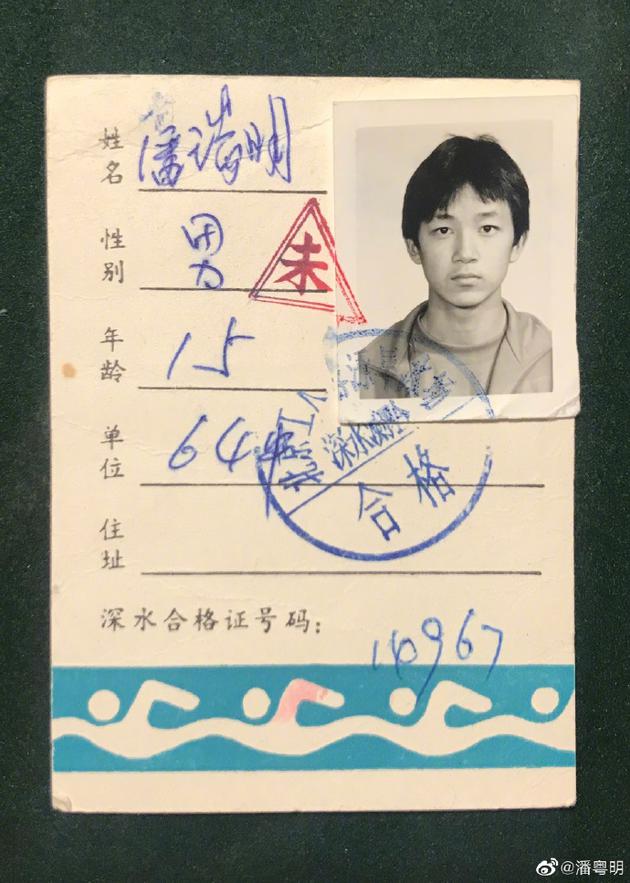 姓名 潘瑞明
性别 男
未
年龄 15
单位 64中
深水
合格
住址
深水合格证号码:
@潘粤明